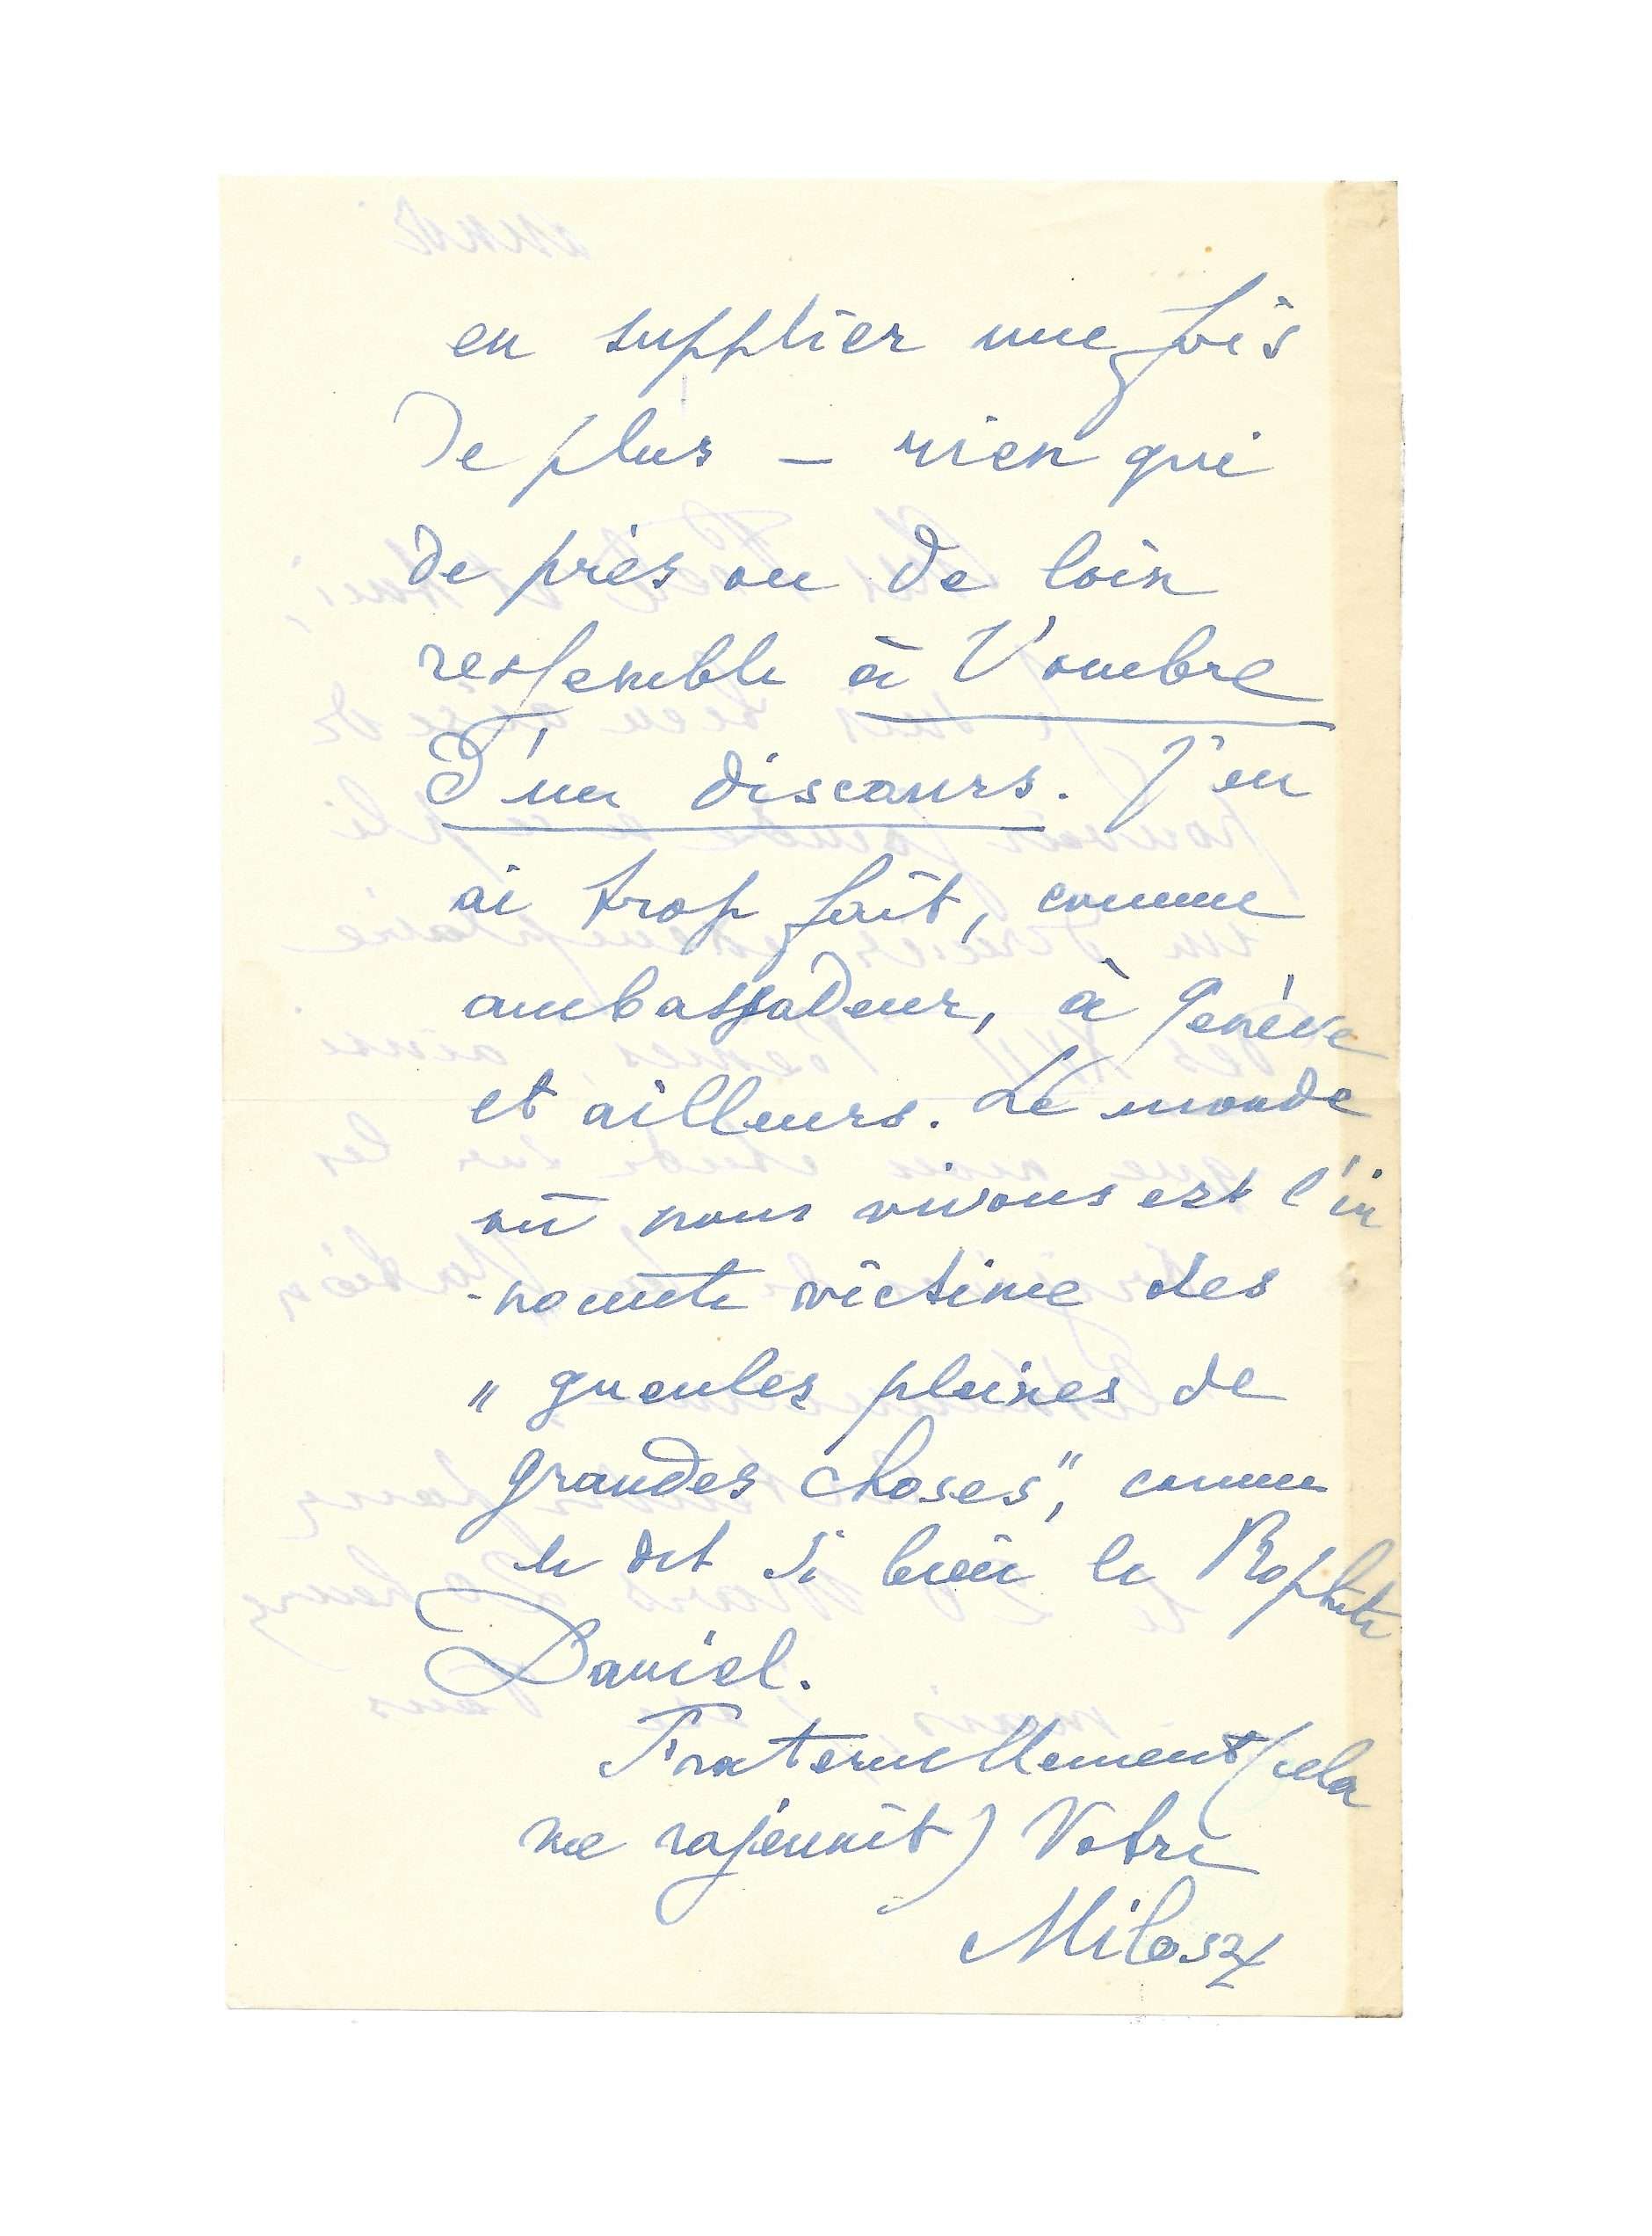 en supplier une fois
de plus – rien qui
de près ou de loin
ressemble à l'ombre
d'un discours. J'en
ai trop fait, comme
ambassadeur, à Genève
et ailleurs. Le monde
où nous vivons est l'in
-nocente victime des
„ gueules pleines de
grandes choses", comme
le dit si bien le Prophète
Daniel.
Fraternellement (cela
me rajeunit) Votre
Milosz